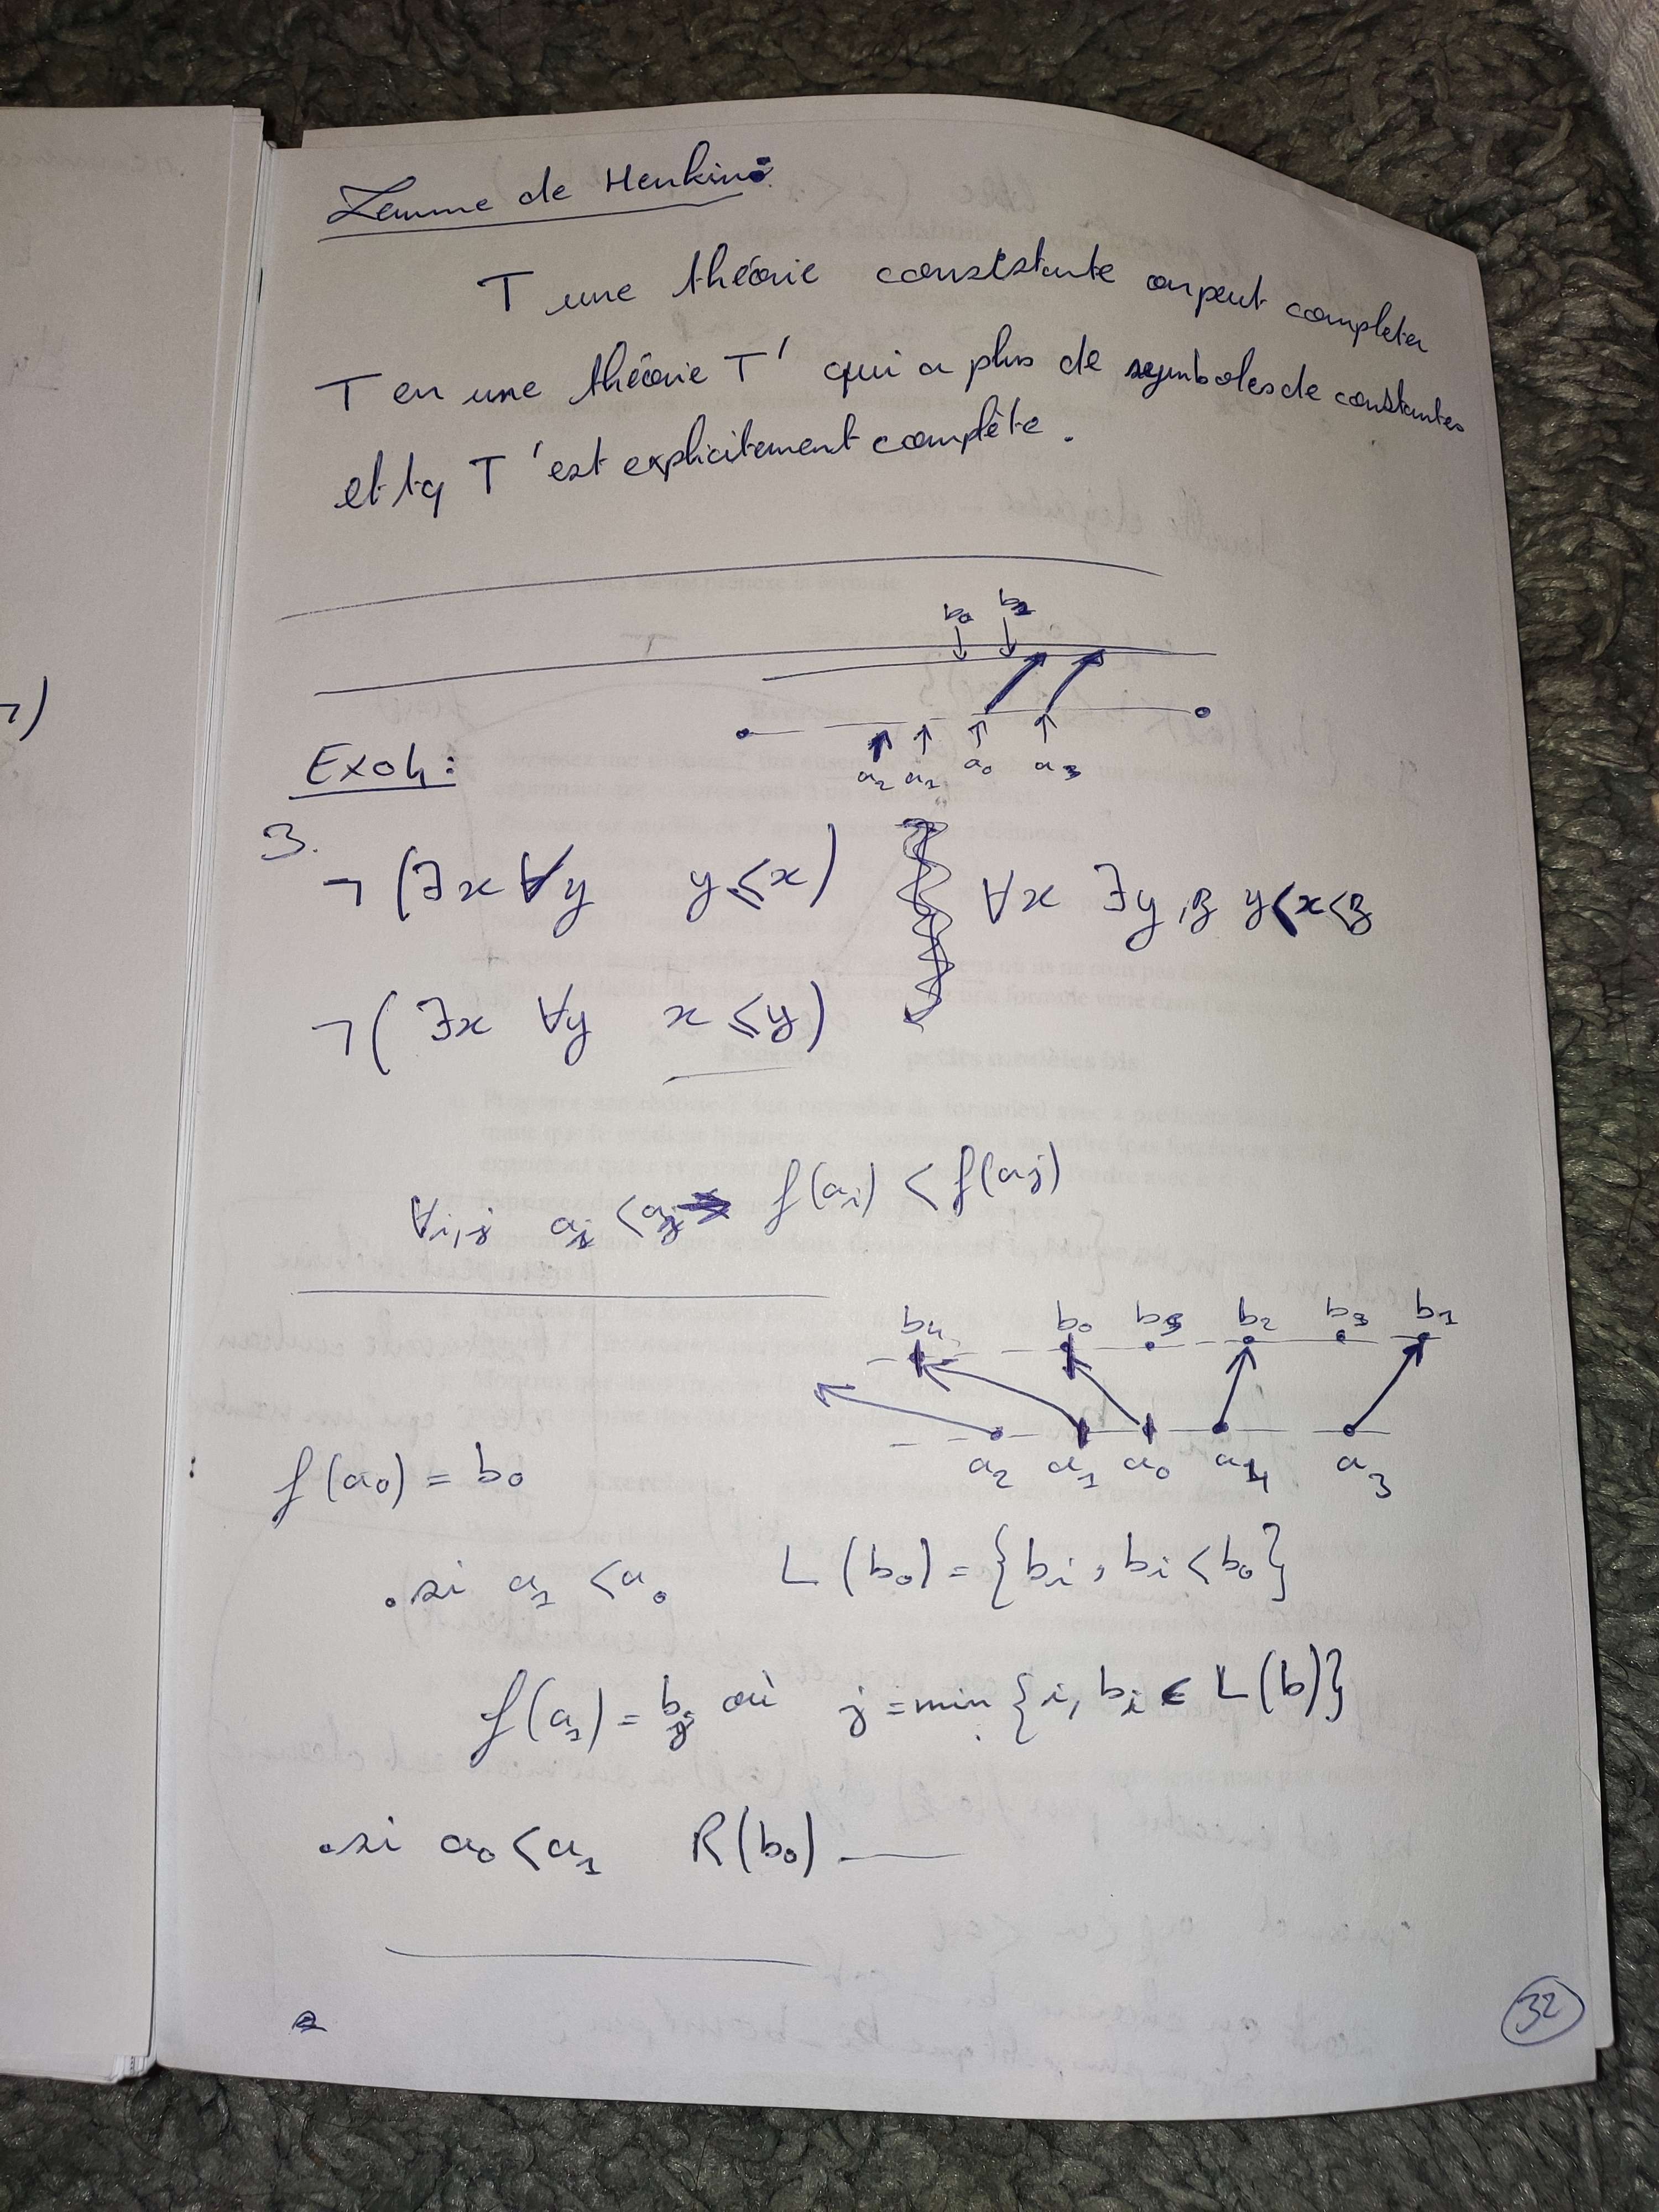 Lemme de Henkin :
T une théorie consistante on peut completer
T en une théorie T' qui a plus de symboles de constantes
et tq T' est explicitement complète.
b₀ b₁
a₂ a₁ a₀ a₃
Exo 4 :
3. ¬(∃x ∀y y ≤ x) ∀x ∃y,z y < x < z
¬(∃x ∀y x ≤ y)
∀i,j aᵢ < aⱼ ⇒ f(aᵢ) < f(aⱼ)
b₄ b₀ b₅ b₂ b₃ b₁
a₂ a₁ a₀ a₄ a₃
f(a₀) = b₀
. si a₁ < a₀ L(b₀) = {bᵢ, bᵢ < b₀}
f(a₁) = bⱼ où j = min {i, bᵢ ∈ L(b)}
. si a₀ < a₁ R(b₀)
32